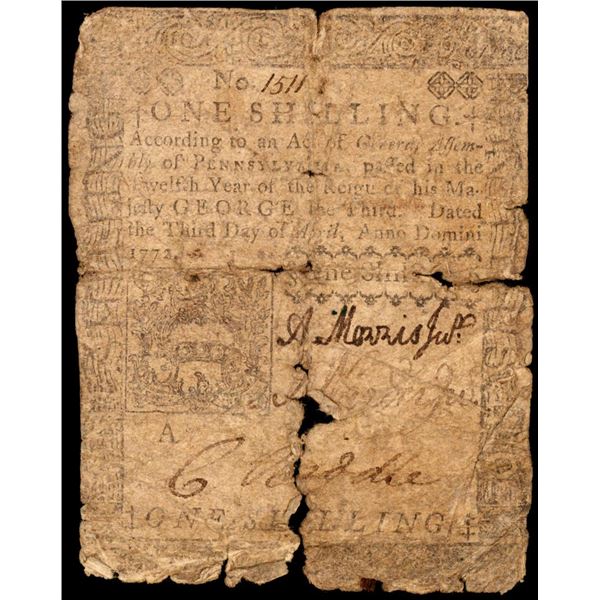 No. 1511
ONE SHILLING.
According to an Act of General Assem-
bly of PENNSYLVANIA, passed in the
Twelfth Year of the Reign of his Ma-
jesty GEORGE the Third. Dated
the Third Day of April, Anno Domini
1772.
One Shill
A Morris Junr.
A
C
ONE SHILLING